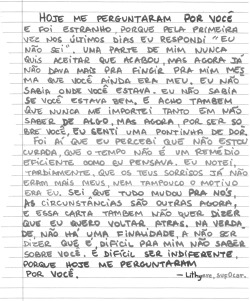 HOJE ME PERGUNTARAM POR VOCÊ
E FOI ESTRANHO, PORQUE PELA PRIMEIRA
VEZ NOS ÚLTIMOS DIAS EU RESPONDI "EU
NÃO SEI". UMA PARTE DE MIM NUNCA
QUIS ACEITAR QUE ACABOU, MAS AGORA JÁ
NÃO DAVA MAIS PRA FINGIR PRA MIM MES-
MA QUE VOCÊ AINDA ERA MEU. EU NÃO
SABIA ONDE VOCÊ ESTAVA. EU NÃO SABIA
SE VOCÊ ESTAVA BEM. E ACHO TAMBÉM
QUE NUNCA ME IMPORTEI TANTO EM NÃO
SABER DE ALGO, MAS AGORA, POR SER SO-
BRE VOCÊ, EU SENTI UMA PONTINHA DE DOR.
FOI AÍ QUE EU PERCEBI QUE NÃO ESTOU
CURADA, QUE O TEMPO NÃO É UM REMÉDIO
EFICIENTE COMO EU PENSAVA. EU NOTEI,
TARDIAMENTE, QUE OS TEUS SORRISOS JÁ NÃO
ERAM MAIS MEUS, NEM TAMPOUCO O MOTIVO
ERA EU. SEI QUE TUDO MUDOU PRA NÓS,
AS CIRCUNSTÂNCIAS SÃO OUTRAS AGORA,
E ESSA CARTA TAMBÉM NÃO QUER DIZER
QUE EU QUERO VOLTAR ATRÁS. NA VERDA-
DE, NÃO HÁ UMA FINALIDADE, A NÃO SER
DIZER QUE É DIFÍCIL PRA MIM NÃO SABER
SOBRE VOCÊ. É DIFÍCIL SER INDIFERENTE.
PORQUE HOJE ME PERGUNTARAM
POR VOCÊ.